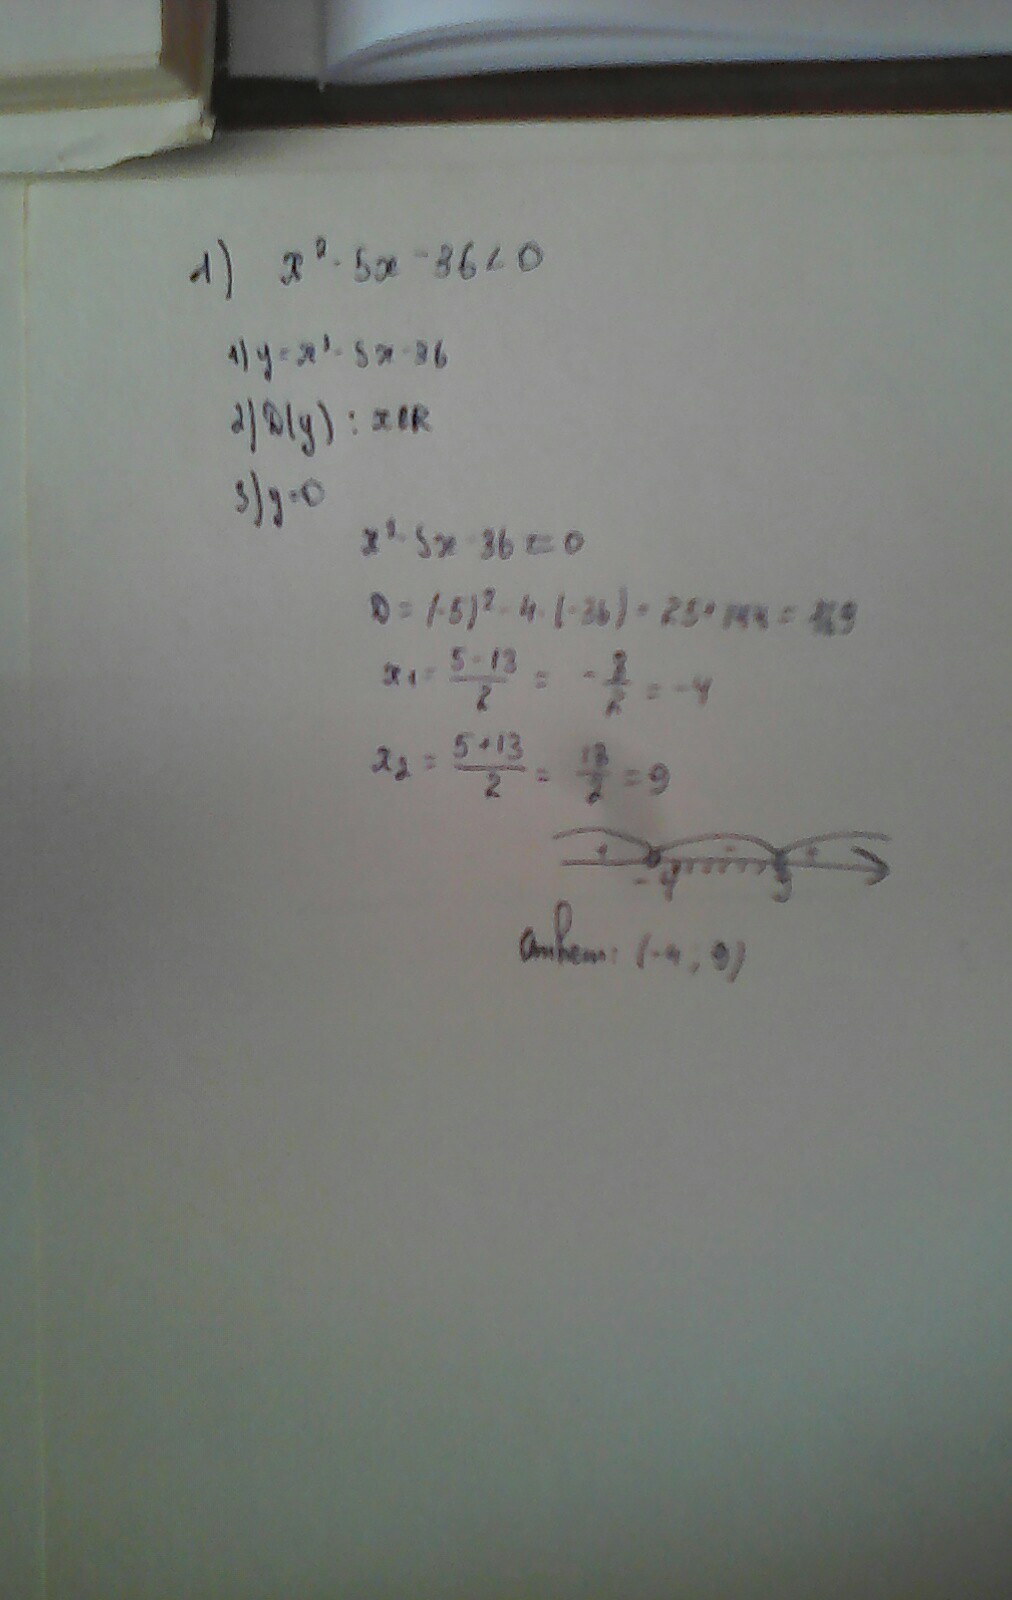 1) x² - 5x - 36 < 0
1) y = x² - 5x - 36
2) D(y) : x ∈ R
3) y = 0
x² - 5x - 36 = 0
D = (-5)² - 4 · (-36) = 25 + 144 = 169
x₁ = (5 - 13)/2 = -8/2 = -4
x₂ = (5 + 13)/2 = 18/2 = 9
+ - +
-4 9
Ответ: (-4, 9)